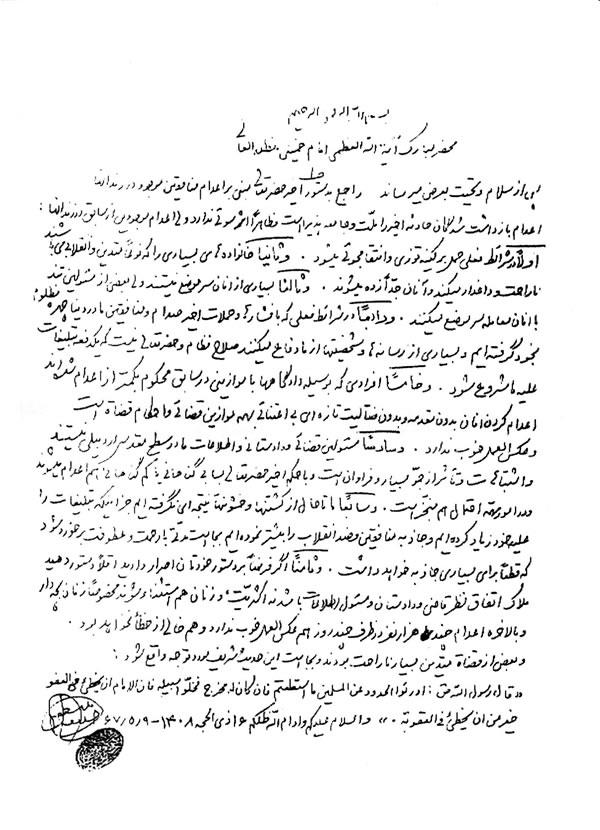 بسم الله الرحمن الرحیم
محضر مبارک آیة الله العظمی امام خمینی مدظله العالی
پس از سلام و تحیت بعرض میرساند راجع بدستور اخیر حضرتعالی مبنی بر اعدام منافقین موجود در زندانها
اعدام بازداشت شدگان حادثه اخیر را ملت و جامعه پذیرا است و ظاهراً اثر سوئی ندارد ولی اعدام موجودین از سابق در زندانها :
اولاً در شرائط فعلی حمل بر کینه توزی و انتقامجوئی میشود . و ثانیاً خانواده های بسیاری را که نوعاً متدین و انقلابی می باشند
ناراحت و داغدار میکند و آنان جداً زده میشوند . و ثالثاً بسیاری از آنان سر موضع نیستند ولی بعضی از مسئولین تند
با آنان معامله سر موضع میکنند . و رابعاً در شرائط فعلی که با فشارها و حملات اخیر صدام و منافقین ما در دنیا چهره مظلوم
بخود گرفته ایم و بسیاری از رسانه ها و شخصیتها از ما دفاع میکنند صلاح نظام و حضرتعالی نیست که یکدفعه تبلیغات
علیه ما شروع شود . و خامساً افرادی که بوسیله دادگاهها با موازینی در سابق محکوم بکمتر از اعدام شده اند
اعدام کردن آنان بدون مقدمه و بدون فعالیت تازه ای بی اعتنائی بهمه موازین قضائی و احکام قضاة است
و عکس العمل خوب ندارد . و سادساً مسئولین قضائی و دادستانی و اطلاعات ما در سطح مقدس اردبیلی نیستند
و اشتباهات و تأثر از جو بسیار و فراوان است و با حکم اخیر حضرتعالی بسا بی گناهانی یا کم گناهانی هم اعدام میشوند
و در امور مهمه احتمال هم منجز است . و سابعاً ما تا حال از کشتنها و خشونتها نتیجه ای نگرفته ایم جز اینکه تبلیغات را
علیه خود زیاد کرده ایم و جاذبه منافقین و ضد انقلاب را بیشتر نموده ایم بجا است مدتی با رحمت و عطوفت برخورد شود
که قطعاً برای بسیاری جاذبه خواهد داشت . و ثامناً اگر فرضاً بر دستور خودتان اصرار دارید اقلاً دستور دهید
ملاک اتفاق نظر قاضی و دادستان و مسئول اطلاعات باشد نه اکثریت و زنان هم استثنا شوند مخصوصاً زنان بچه دار
و بالاخره اعدام چند هزار نفر در ظرف چند روز هم عکس العمل خوب ندارد و هم خالی از خطا نخواهد بود .
و بعضی از قضاة متدین بسیار ناراحت بودند و بجا است این حدیث شریف مورد توجه واقع شود :
« قال رسول الله ص : ادرئوا الحدود عن المسلمین ما استطعتم فان کان له مخرج فخلوا سبیله فان الامام ان یخطئ فی العفو
خیر من ان یخطئ فی العقوبة . » والسلام علیکم و ادام الله ظلکم ۱۶ ذی الحجه ۱۴۰۸ - ۶۷/۵/۹